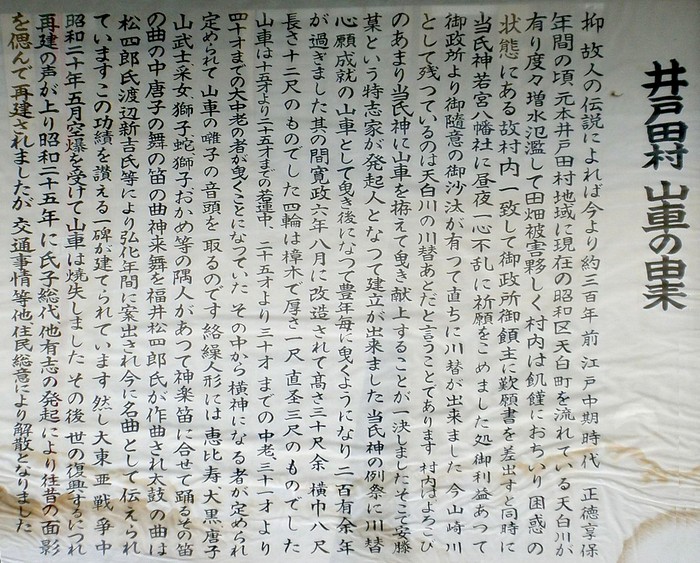 井戸田村 山車の由来
抑 故人の伝説によれば今より約三百年前 江戸中期時代 正徳享保
年間の頃 元本井戸田村地域に現在の昭和区天白町を流れている天白川が
有り度々増水氾濫して田畑被害夥しく村内は飢饉におちいり困惑の
状態にある故村内一致して御政所御領主に歎願書を差出すと同時に
当氏神若宮八幡社に昼夜一心不乱に祈願をこめました処御利益あつて
御政所より御随意の御沙汰が有つて直ちに川替が出来ました 今山崎川
として残つているのは天白川の川替あとだと言うことであります 村内はよろこび
のあまり当氏神に山車を拵えて曳き献上することが一決しましたそこで安藤
某という特志家が発起人となつて建立が出来ました 当氏神の例祭に川替
心願成就の山車として曳き後になつて豊年毎に曳くようになり 二百有余年
が過ぎました其の間寛政六年八月に改造されて髙さ三十尺余 横巾八尺
長さ十二尺のものでした四輪は樟木で厚さ一尺 直圣三尺のものでした
山車は十五才より二十五才までの若連中、二十五才より三十才までの中老三十一才より
四十才までの大中老の者が曳くことになつていた その中から横神になる者が定められ
定められて 山車の囃子の音頭を取るのです 絡繰人形には 恵比寿 大黒 唐子
山武士采女獅子蛇獅子おかめ等の隅人があつて神楽笛に合せて踊るその笛
の曲の中唐子の舞の笛の曲神来舞を福井松四郎氏が作曲され太鼓の曲は
松四郎氏渡辺新吉氏等により弘化年間に案出され今に名曲として伝えられ
ています この功績を讃える一碑が建てられています 然し大東亜戦争中
昭和二十年五月空爆を受けて山車は焼失しました その後 世の復興するにつれ
再建の声が上り昭和二十五年に氏子総代他有志の発起により往昔の面影
を偲んで再建されましたが 交通事情等他住民総意により解散となりました